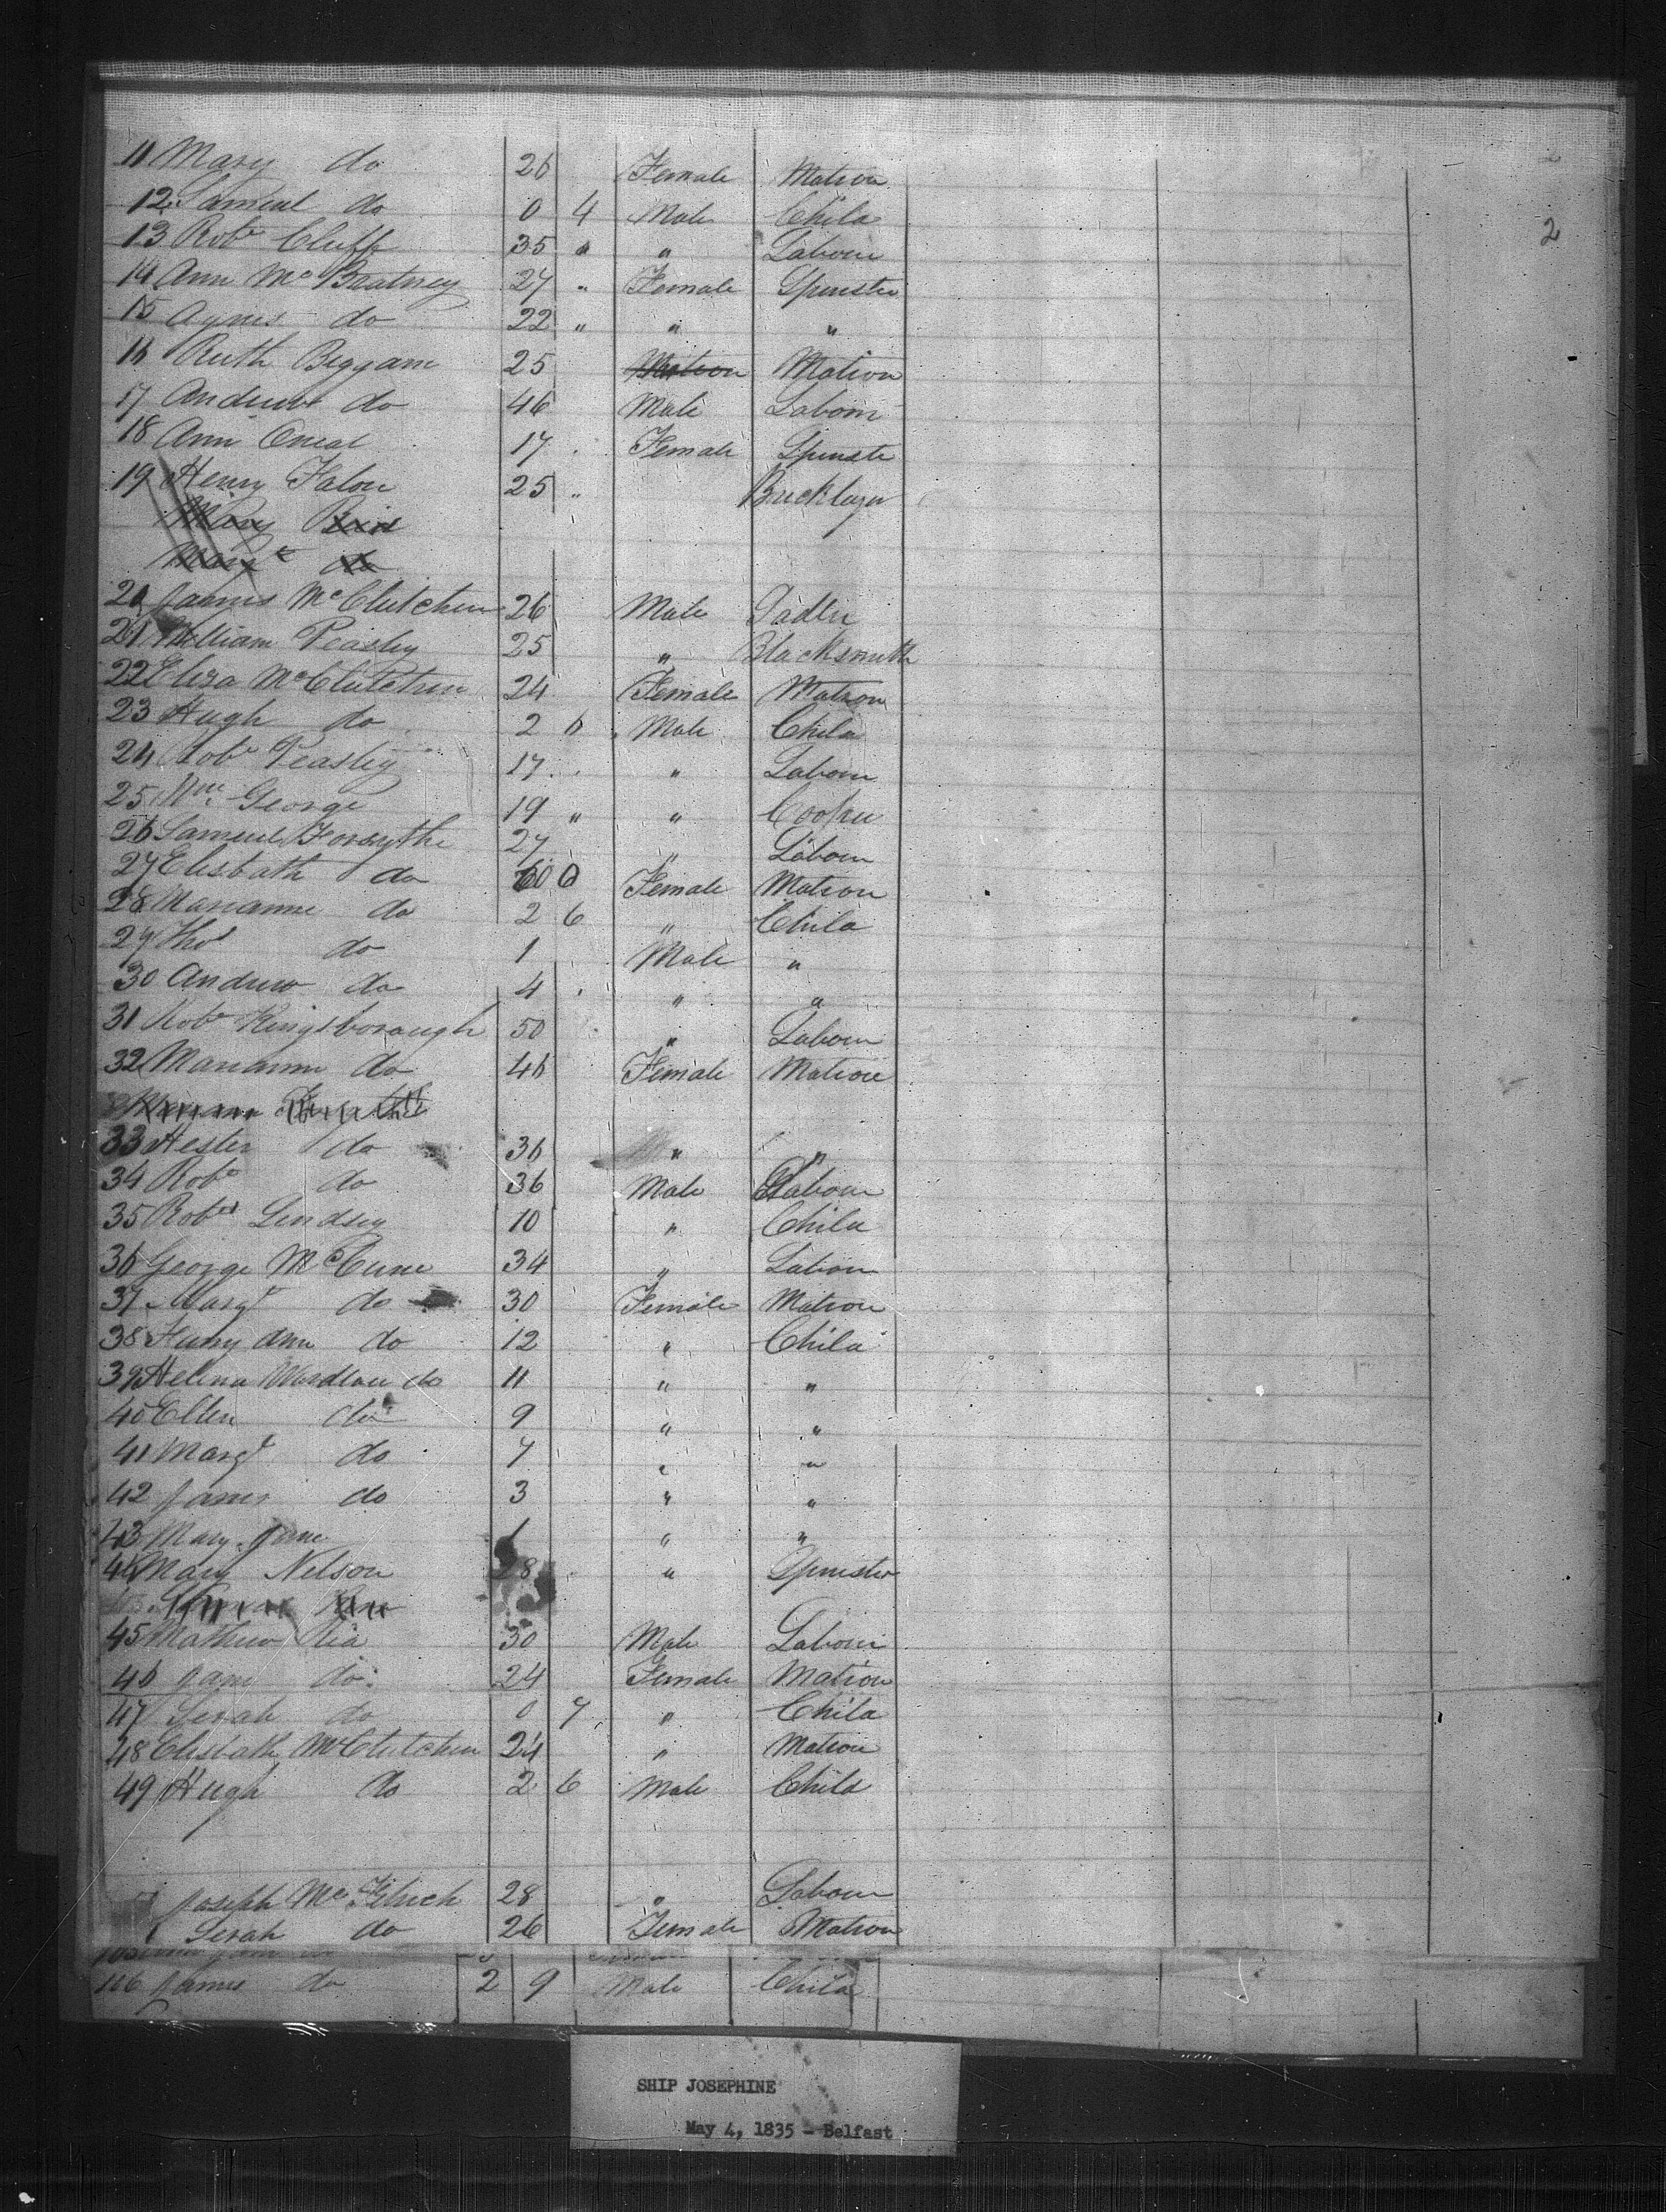 2
11 Mary do 26 Female Matron
12 Sameul do 0 4 Male Child
13 Robt Cluff 35 " " Labour
14 Ann Mc Bratney 27 " Female Spinster
15 Agnes do 22 " " "
16 Ruth Beggam 25 Matron Matron
17 Andrew do 46 Male Labour
18 Ann Oneal 17 Female Spinste
19 Henry Falon 25 " Bricklayer
Mary
do
20 James McClutchen 26 Male Sadler
21 William Peasley 25 " Blacksmith
22 Eliza McClutchen 24 Female Matron
23 Hugh do 2 6 Male Child
24 Robt Peasley 17 " Labour
25 Wm George 19 " " Cooper
26 Samuel Forsythe 27 " Labour
27 Elisbath do 60 0 Female Matron
28 Marianne do 2 6 " Child
29 Thos do 1 Male "
30 Andrew do 4 " "
31 Robt Kingsborough 50 " Labour
32 Marianne do 46 Female Matron
33 Hester do 36 " "
34 Robt do 36 Male Labour
35 Robt Lindsey 10 " Child
36 George McCune 34 " Labour
37 Margt do 30 Female Matron
38 Ann do 12 " Child
39 Helena Wardlau do 11 " "
40 Ellen do 9 " "
41 Margt do 7 " "
42 James do 3 " "
43 Mary Jane 1 " "
44 Mary Nelson 28 " Spinster
45 Mathew Ria 30 Male Labour
46 Jane do 24 Female Matron
47 Serah do 0 7 " Child
48 Elisbath McClutchen 24 " Matron
49 Hugh do 2 6 Male Child
Joseph Mc 28 " Labour
Serah do 26 Female Matron
106 James do 2 9 Male Child
SHIP JOSEPHINE
May 4, 1835 - Belfast